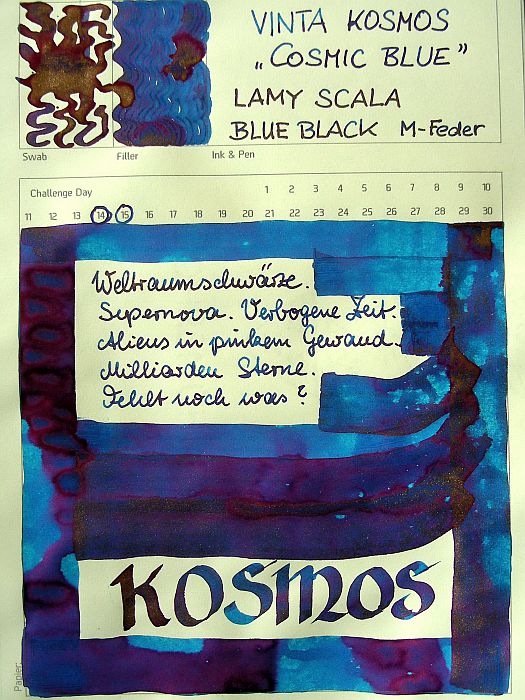 VINTA KOSMOS
„COSMIC BLUE”
LAMY SCALA
BLUE BLACK M-Feder
Swab Filler Ink & Pen
Challenge Day 1 2 3 4 5 6 7 8 9 10
11 12 13 14 15 16 17 18 19 20 21 22 23 24 25 26 27 28 29 30
Weltraumschwärze.
Supernova. Verbogene Zeit.
Aliens in pinkem Gewand.
Milliarden Sterne.
Fehlt noch was?
KOSMOS
Papier: